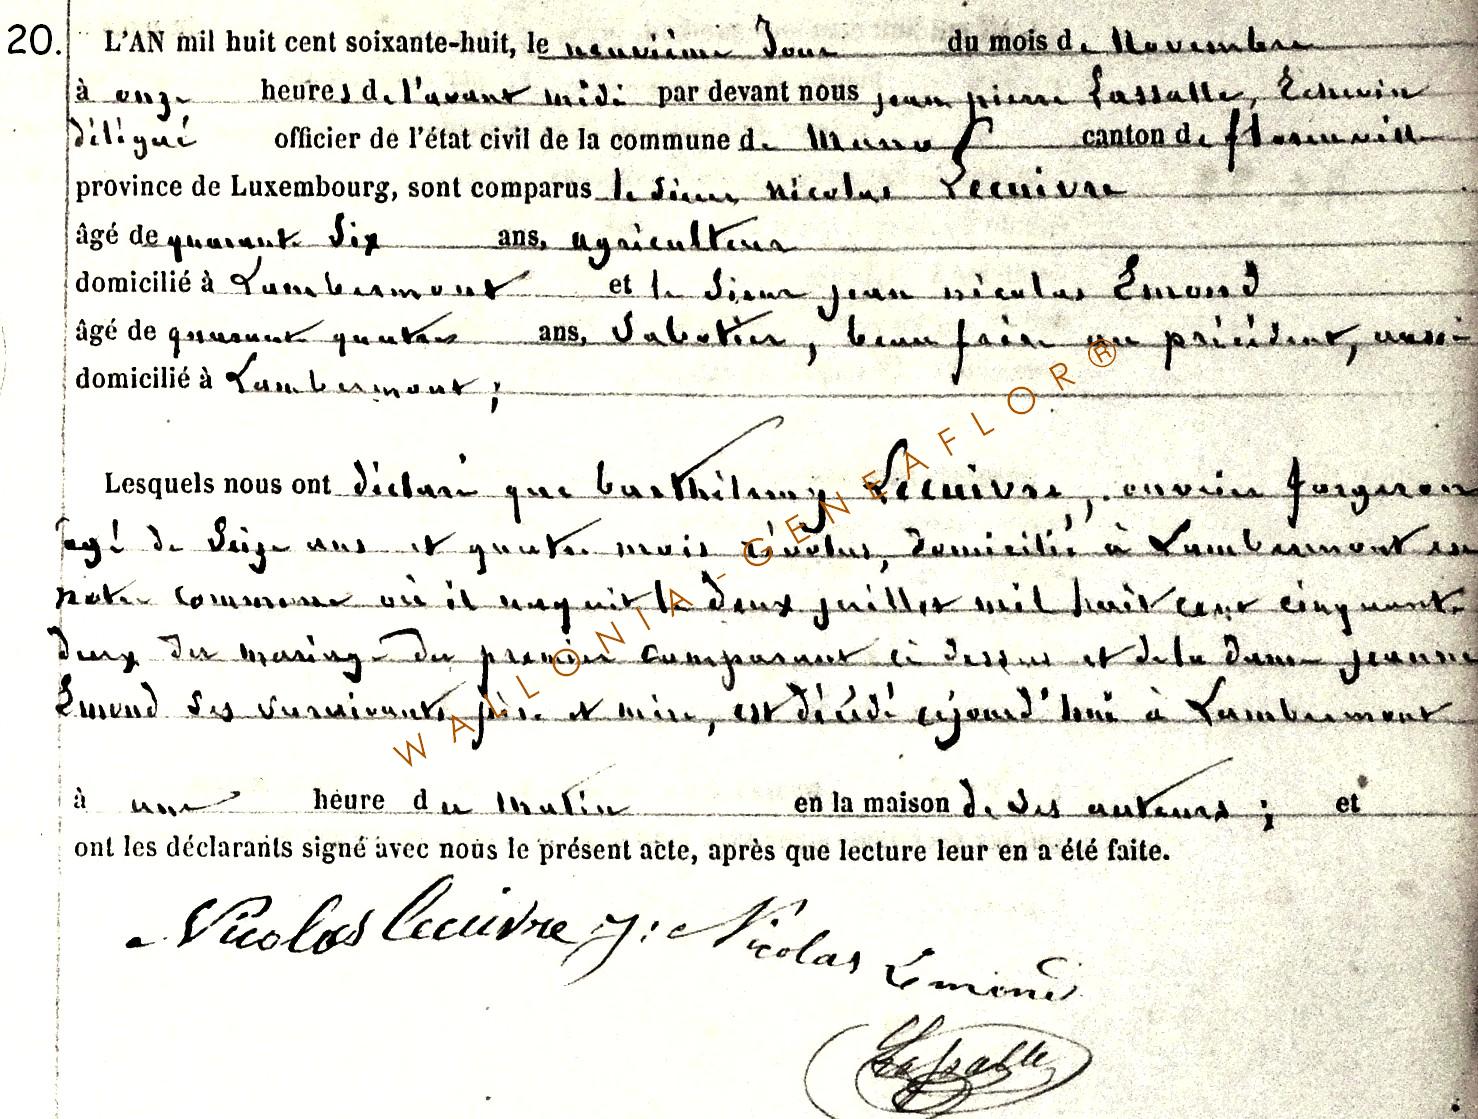 20. L'AN mil huit cent soixante-huit, le neuvième Jour du mois de Novembre
à onze heures de l'avant midi par devant nous jean pierre Lassalle, Echevin
délégué officier de l'état civil de la commune de Muno canton de florenville
province de Luxembourg, sont comparus le Sieur nicolas Lecuivre
âgé de quarante Six ans, agriculteur
domicilié à Lambermont et le Sieur jean nicolas Emond
âgé de quarante quatre ans, Sabotier, beau frère au précédent, aussi
domicilié à Lambermont;
Lesquels nous ont déclaré que barthélemy Lecuivre, ouvrier forgeron
agé de Seize ans et quatre mois évolus, domicilié à Lambermont en
notre commune où il naquit le deux juillet mil huit cent cinquante
deux du mariage du premier comparant ci dessus et de la dame jeanne
Emond ses survivants père et mère, est décédé cejourd'hui à Lambermont
à une heure du matin en la maison de ses auteurs; et
ont les déclarants signé avec nous le présent acte, après que lecture leur en a été faite.
Nicolas lecuivre J: Nicolas Emond
Lassalle
WALLONIA-GENEAFLOR®